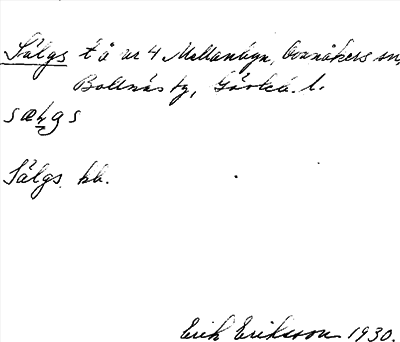 Sälgs t å nr 4 Mellanbyn, Arnåkers sn,
Bollnäs tg, Gävleb. l.
sæɫgs
Sälgs. hb.
Erik Eriksson 1930.